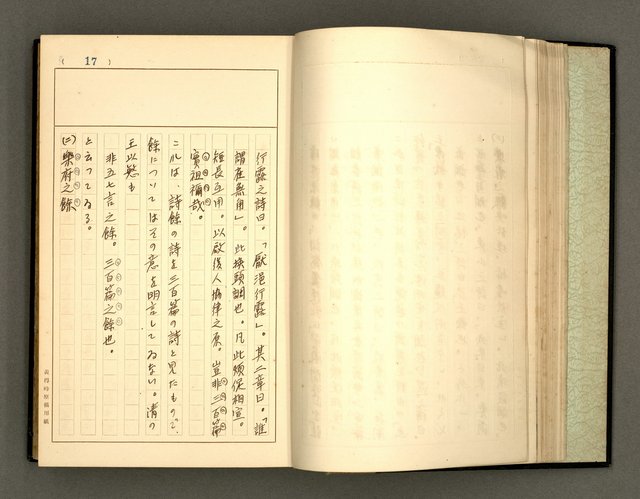 ( 17 )
行露之詩曰。「厭浥行露」。其二章曰。「誰
謂雀無角」。此換頭調也。凡此煩促相宣。
短長互用。以啟後人協律之原。豈非三百篇
實祖禰哉。
これは、詩餘の詩を三百篇の詩と見たもので、
餘についてはその意を明言してゐない。清の
王以慜も
非五七言之餘。三百篇之餘也。
と云つてゐる。
(二)樂府之餘
原稿用紙